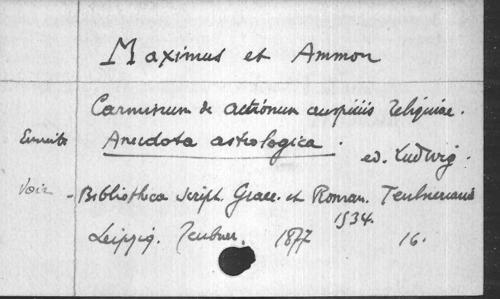 Maximus et Ammon
Carminum de actionum auspiciis reliquiae.
Anecdota astrologica. ed. Ludwig.
Voir - Bibliotheca script. Graec. et Roman. Teubneriana
1534.
Leipzig. Teubner. 1877 16.